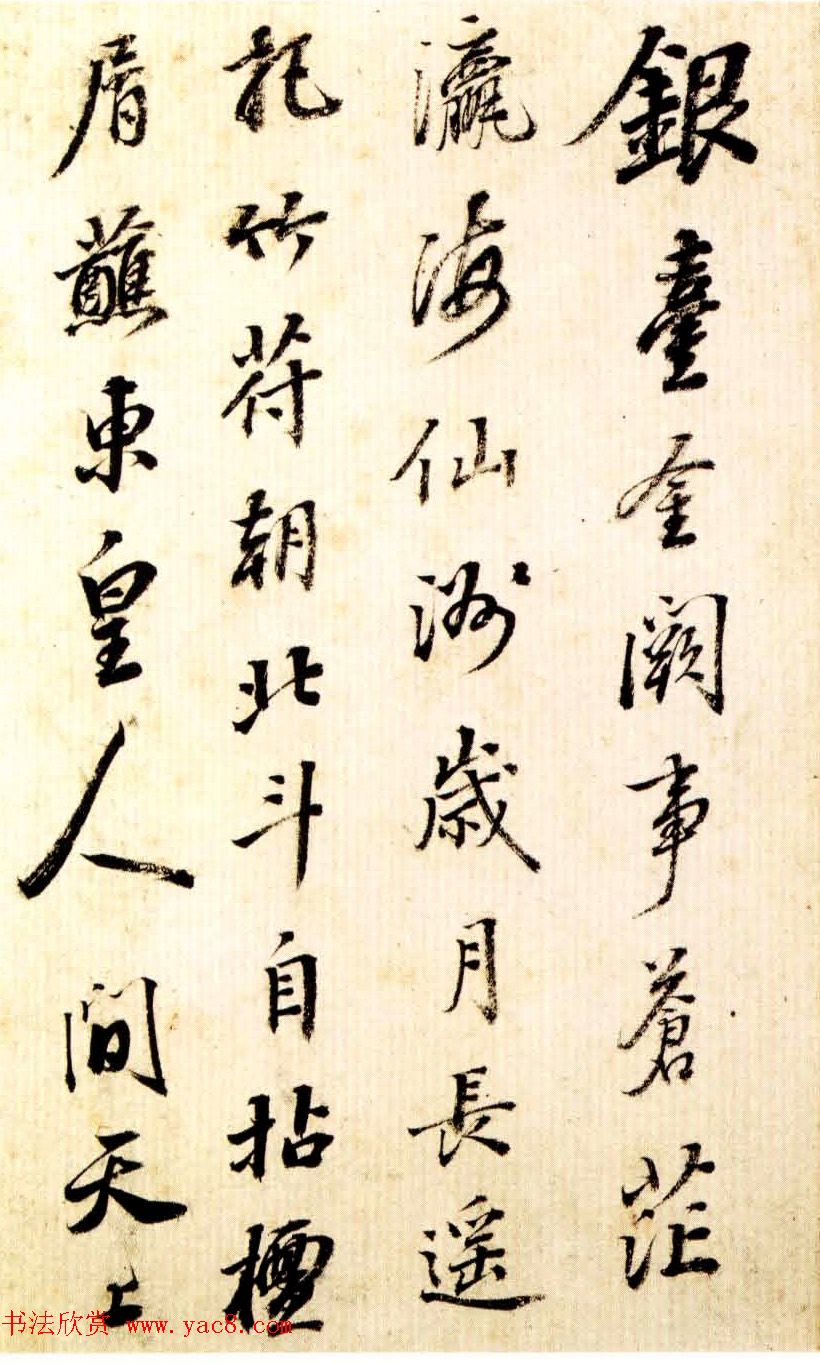 銀臺金闕事蒼茫
瀛海仙洲歲月長遥
記竹符朝北斗自拈檀
屑蘸東皇人間天上
书法欣赏 www.yac8.com